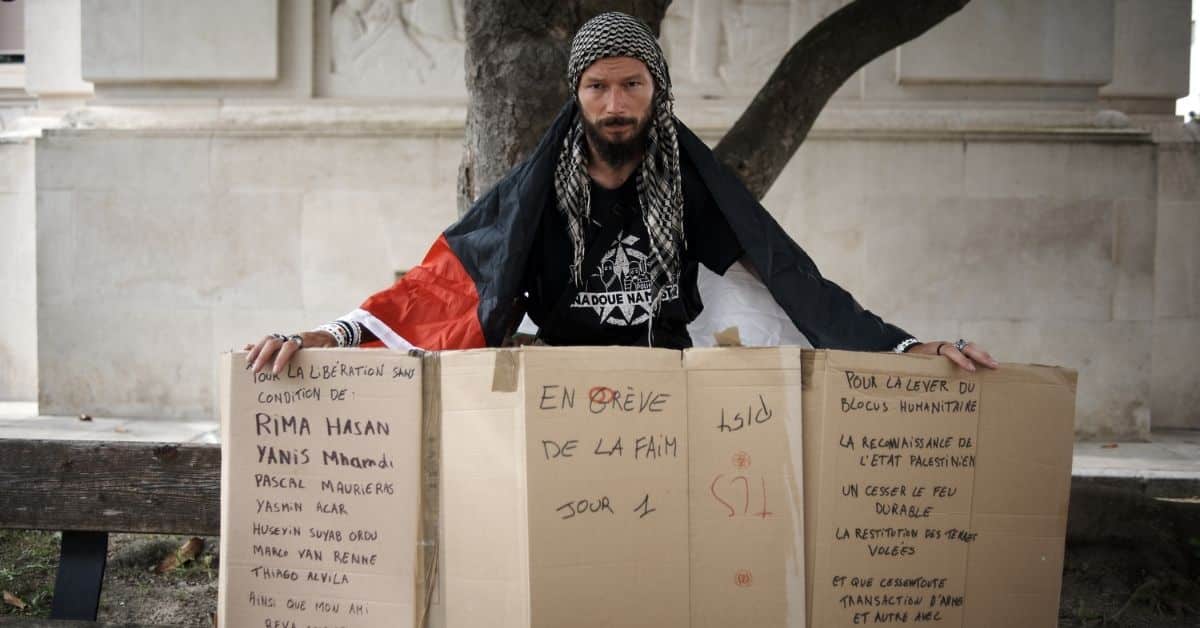 POUR LA LIBÉRATION SANS
CONDITION DE :
RIMA HASAN
YANIS Mhamdi
PASCAL MAURIERAS
YASMIN ACAR
HUSEYIN SUYAB ORDU
MARCO VAN RENNE
THIAGO ALVILA
AINSI QUE MON AMI
REVA
EN GRÈVE
DE LA FAIM
JOUR 1
POUR LA LEVER DU
BLOCUS HUMANITAIRE
LA RECONNAISSANCE DE
L'ETAT PALESTINIEN
UN CESSER LE FEU
DURABLE
LA RESTITUTION DES TERRES
VOLÉES
ET QUE CESSEMTOUTE
TRANSACTION D'ARME
ET AUTRE AVEC